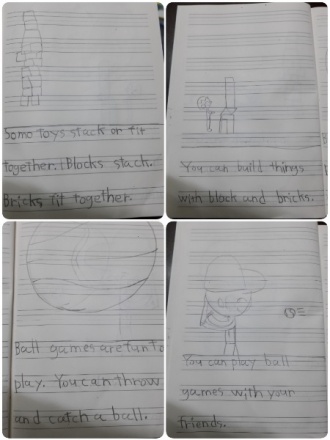 Somo toys stack or fit
together. Blocks stack.
Bricks fit together.
You can build things
with block and bricks.
Ball games are fun to
play. You can throw
and catch a ball.
You can play ball
games with your
friends.